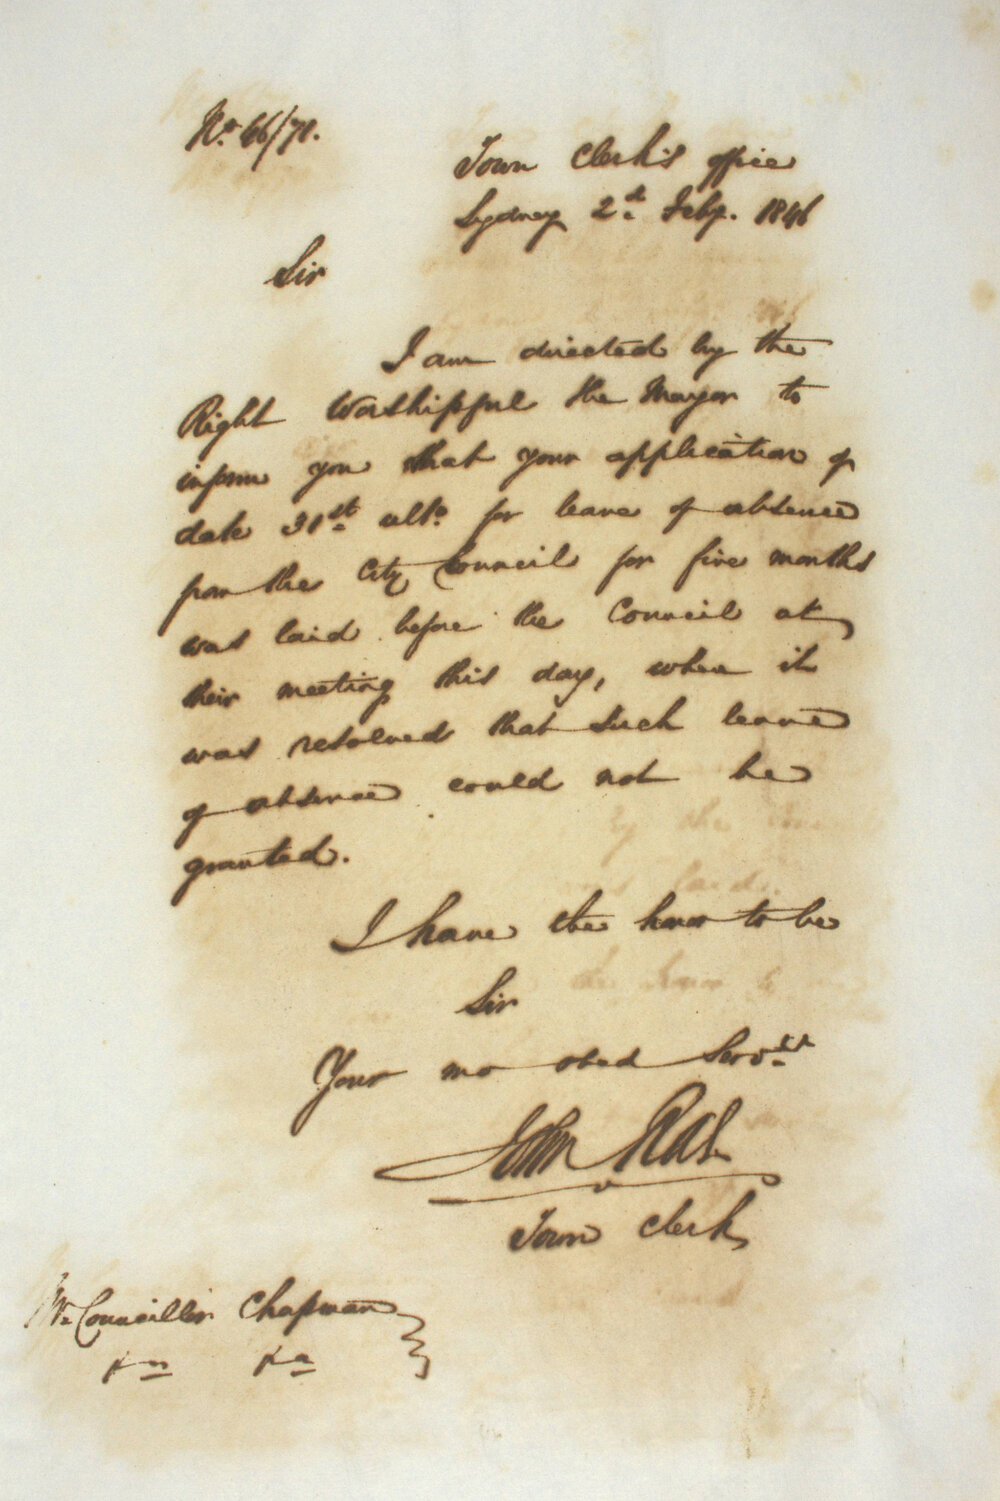 No. 46/71.
Town Clerk's office
Sydney 2d. Feby. 1846
Sir
I am directed by the
Right Worshipful the Mayor to
inform you that your application of
date 31st. ulto. for leave of absence
from the City Council for five months
was laid before the Council at
their meeting this day, when it
was resolved that such leave
of absence could not be
granted.
I have the honor to be
Sir
Your mo obed Servt.
John
Town Clerk
Mr. Councillor Chapman